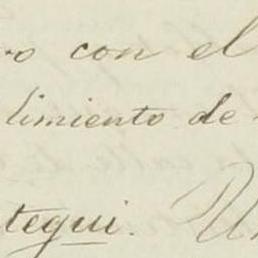 con el
limiento de
tegui. Un